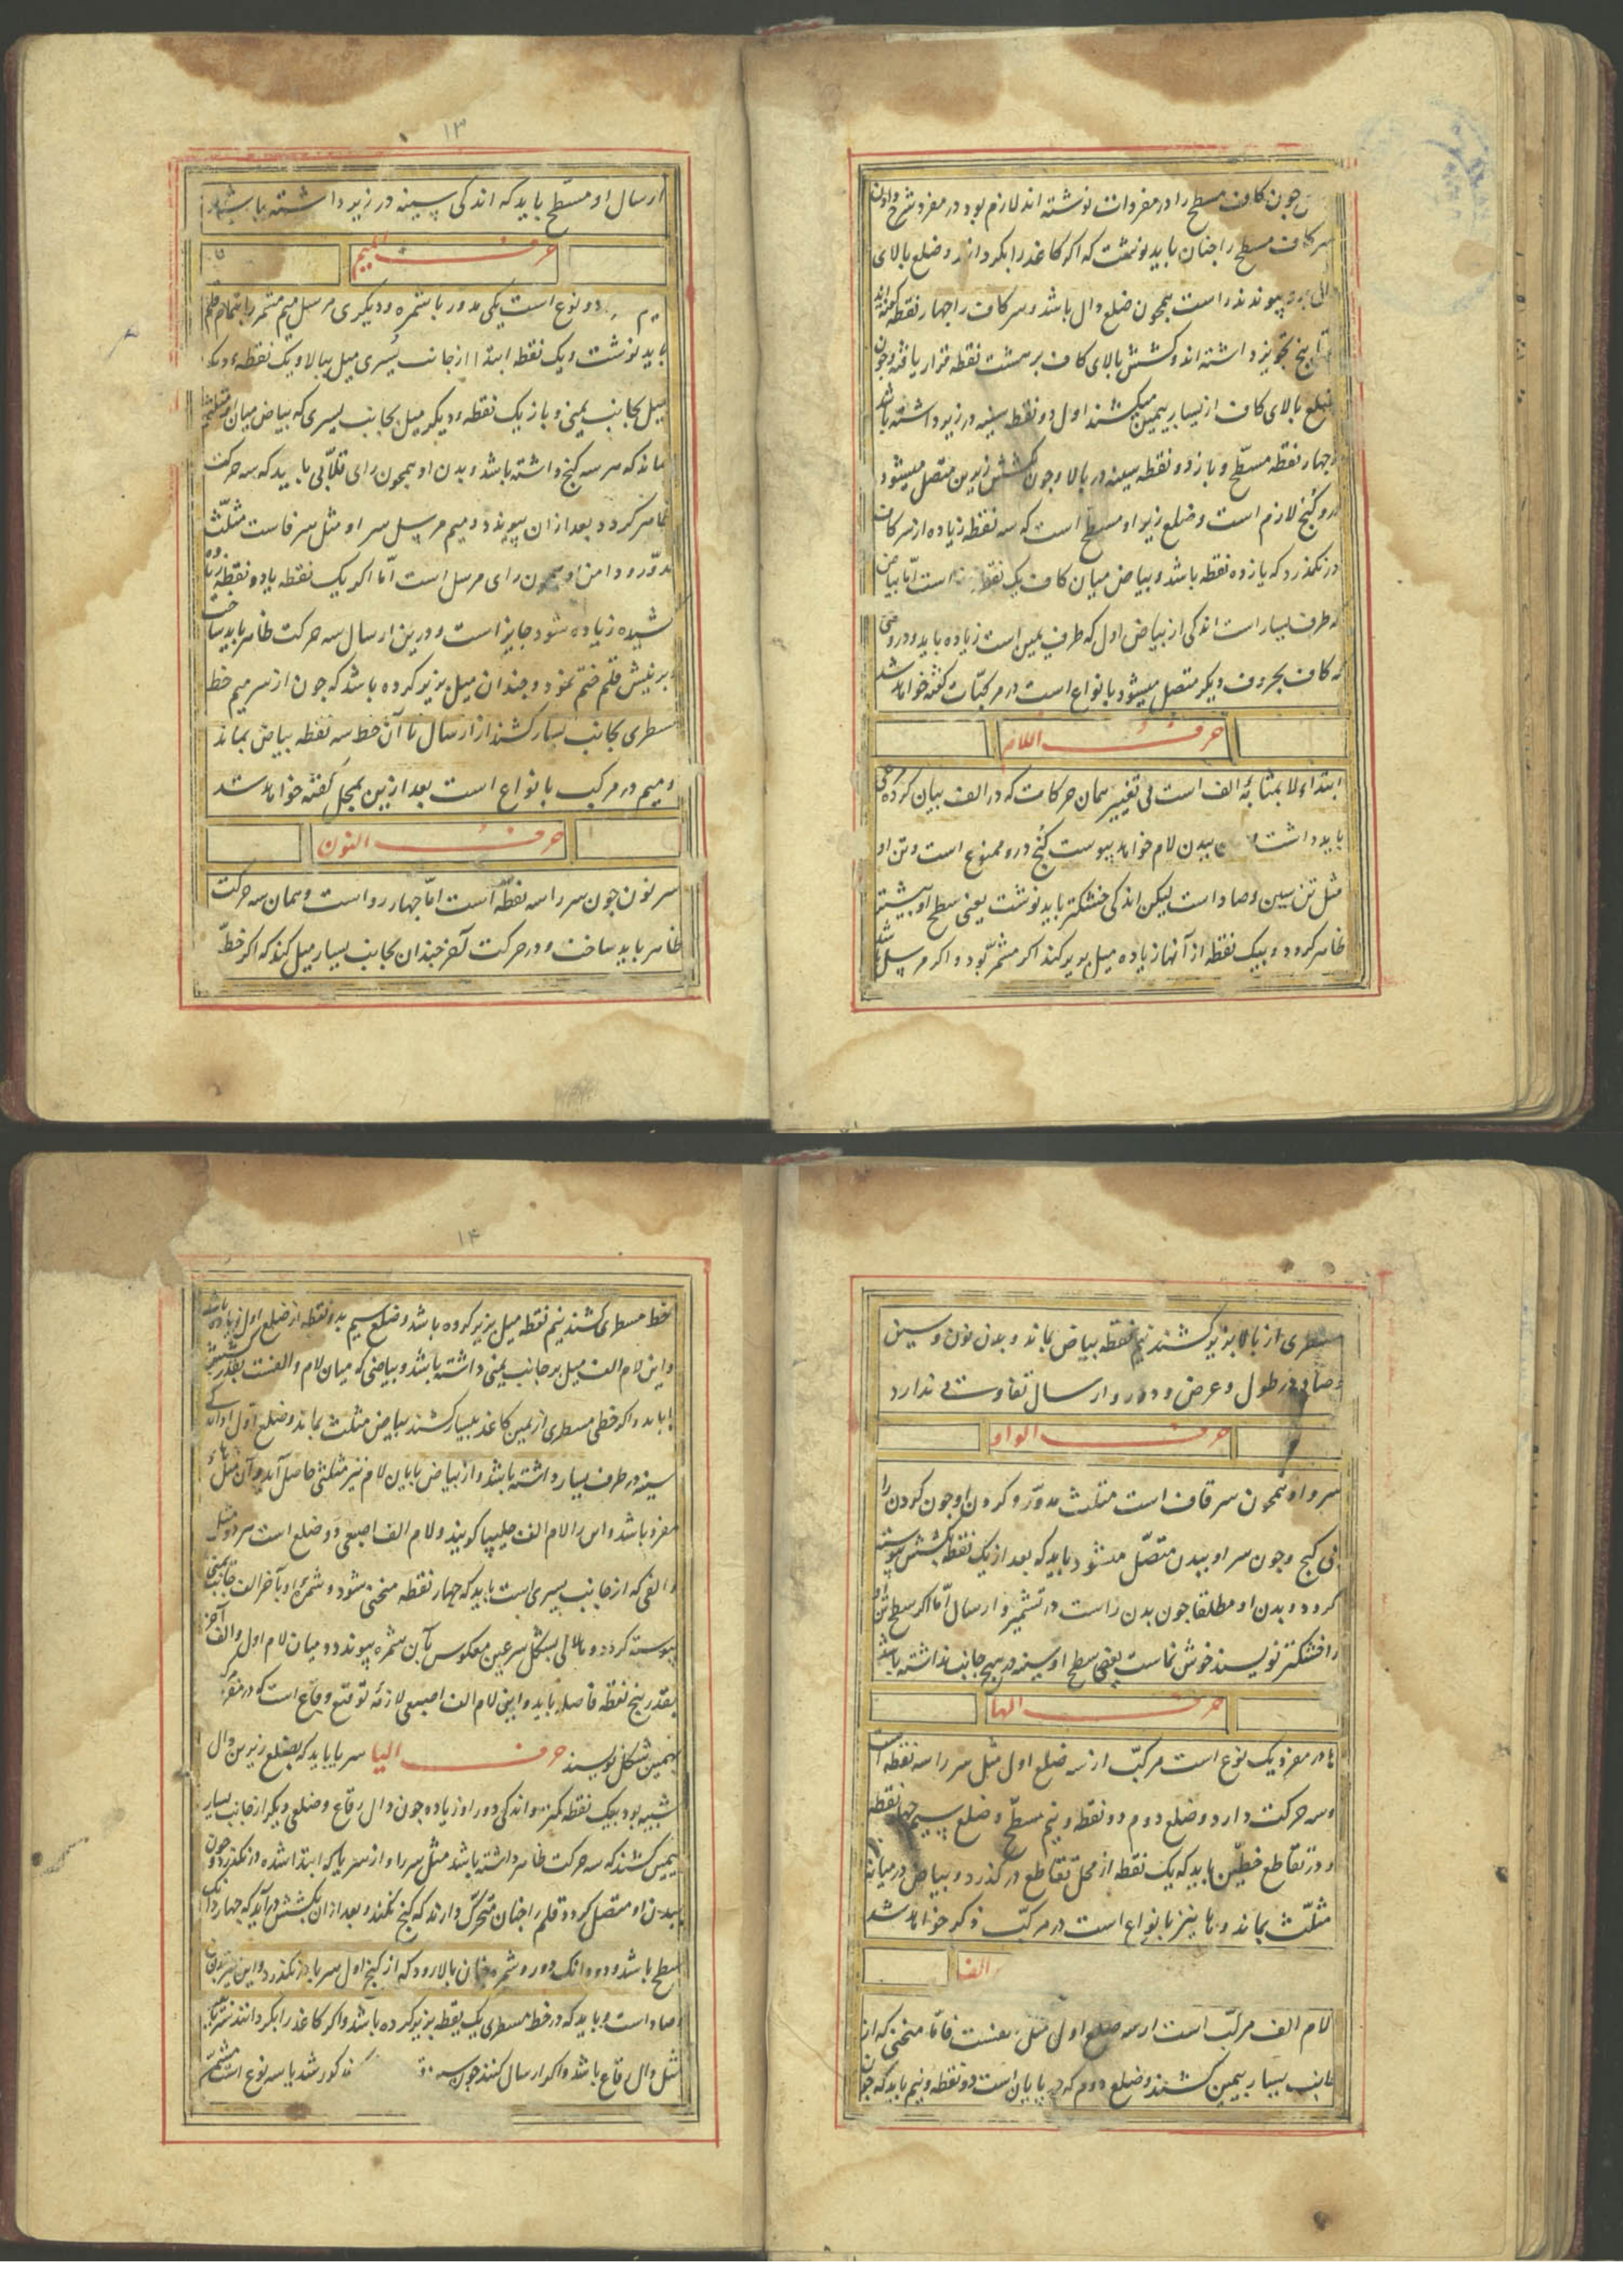 چون کاف مسطح را در مفردات نوشته‌اند لازم بود در مفرد شرح دادن
سر کاف مسطح را چنان باید نوشت که اگر کاغذ را بگردانند و ضلع بالای
پیوندند راست همچون ضلع دال باشد و سر کاف را چهار نقطه گفته‌اند
تا پنج تجویز داشته‌اند و کشش بالای کاف بر هشت نقطه قرار یافته و چون
ضلع بالای کاف از یسار بیمین میکشند اول دو نقطه سینه در زیر داشته باشد
و چهار نقطه مسطّح و باز دو نقطه سینه در بالا و چون کشش زیرین متصل میشود
درو کنج لازم است و ضلع زیر او مسطح است که سه نقطه زیاده از سر کاف
در نگذرد که یازده نقطه باشد و بیاض میان کاف یک نقطه است امّا بیاض
که طرف یسار است اندکی از بیاض اول که طرف یمین است زیاده باید و در وقتی
که کاف بحروف دیگر متصل میشود بانواع است در مرکبّات گفته خواهد شد
حرف اللام
ابتداء لا بمثابهٔ الف است بی تغییر همان حرکات که در الف بیان کرده شد
باید داشت و ببدن لام خواهد پیوست کنج درو ممنوع است و تن او
مثل تن سین و صاد است لیکن اندکی خشکتر باید نوشت یعنی سطح او بیشتر
ظاهر کردد و بیک نقطه از آنها زیاده میل بزیر کند اگر مشمّر بود و اگر مرسل باشد
۱۳
ارسال او مسطّح باید که اندکی سینه در زیر داشته باشد
حرف المیم
دو نوع است یکی مدور با شمره و دیگری مرسل میم مشمر را بتمام قلم
باید نوشت و یک نقطه ابتدا از جانب یُسری میل ببالا و یک نقطه دیگر
میل بجانب یمنی و باز یک نقطه دیگر میل بجانب یسری که بیاض میان او مثلثی
ماند که هر سه کنج داشته باشد و بدن او همچون رای قلّابی باید که سه حرکت
ظاهر کردد بعد از آن پیوندد و میم مرسل سر او مثل سر فاست مثلّث
مدوّر و دامن او همچون رای مرسل است امّا اکر یک نقطه یا دو نقطه
کشیده زیاده شود جایز است و درین ارسال سه حرکت ظاهر باید ساخت
و بر نیش قلم ختم نمود و چندان میل بزیر کرده باشد که چون از سر میم خط
سطری بجانب یسار کشند از ارسال تا آن خط سه نقطه بیاض بماند
و میم در مرکب بانواع است بعد ازین بمحل گفته خواهد شد
حرف النون
سر نون چون سر را سه نقطه است امّا چهار رواست و همان سه حرکت
ظاهر باید ساخت و در حرکت آخر چندان بجانب یسار میل کند که اکر خطّ
مسطری از بالا بزیر کشند نیم نقطه بیاض بماند و بدن نون و سین
و صاد در طول و عرض و دور و ارسال تفاوت ندارد
حرف الواو
سر واو همچون سر قاف است مثلث مدوّر و کردن او چون کردن را
بی کنج و چون سر او ببدن متّصل میشود باید که بعد از یک نقطه کشش پیوسته
کردد و بدن او مطلقا چون بدن راست در تشمیر و ارسال امّا اکر سطح تن او
را خشکتر نویسند خوش نماست یعنی سطح او سینه در هیچ جانب نداشته باشد
حرف الها
ها در مفرد یک نوع است مرکبّ از سه ضلع اول مثل سر را سه نقطه است
و سه حرکت دارد و ضلع دوم دو نقطه و نیم مسطّح و ضلع سیم چهار نقطه
و در تقاطع خطّین باید که یک نقطه از محلّ تقاطع در گذرد و بیاض در میانه
مثلّث بماند و ها نیز بانواع است در مرکّب ذکر خواهد شد
الف
لام الف مرکبّ است از سه ضلع اول مثل منحنی که از
جانب یسار بیمین کشند و ضلع دوم که در پایان است دو نقطه و نیم باید که چون
۱۴
خط مسطری کشند نیم نقطه میل بزیر کرده باشد و ضلع سیم بدو نقطه از ضلع اول زیاده باشد
و این لام الف میل بر جانب یمنی داشته باشد و بیاضی که میان لام و الفست بقدر شش
باید و اکر خطی مسطری از یمین کاغذ بیسار کشند بیاض مثلث بماند و ضلع اول او اندکی
سینه در طرف یسار داشته باشد و از بیاض پایان لام نیز مثلثی حاصل آید و آن مثل هاء
مفرد باشد و این را لام الف چلیپا گویند و لام الف اصبعی دو ضلع است هر دو مثل
الفی که از جانب یسری است باید که چهار نقطه منحنی شود و شمرهٔ او بآخر الف جانب یمنی
پیوسته کردد و بشکل سر عین معکوس بآن شمره پیوندد و میان لام اول و الف آخر
بقدر پنج نقطه فاصله باید و این لام الف اصبعی لازمهٔ توقیع و رقاع است که در مفرد
بهمین شکل نویسند حرف الیا سر یا باید که بضلع زیرین دال
شبیه بود بیک نقطه کمتر و اندکی دور او زیاده چون دال رقاع و ضلعی دیگر از جانب یسار
بیمین کشند که سه حرکت ظاهر داشته باشد مثل سر را و از سر یا که ابتدا شده در نگذرد و چون
ببدن او متصل کردد قلم را چنان متحرّک دارند که کنج نکند و بعد از آن بکشش در آید که چهار دانک
سطح باشد و دو دانک دور و شمره چنان بالا رود که از کنج اول سر یا در نگذرد و این بدن
صاد است و باید که در خط مسطری یک نقطه بزیر کرده باشد و اکر کاغذ را بگردانند سر یا
مثل دال رقاع باشد و اکر ارسال کنند چون مذکور شد یا سه نوع است مشمّر